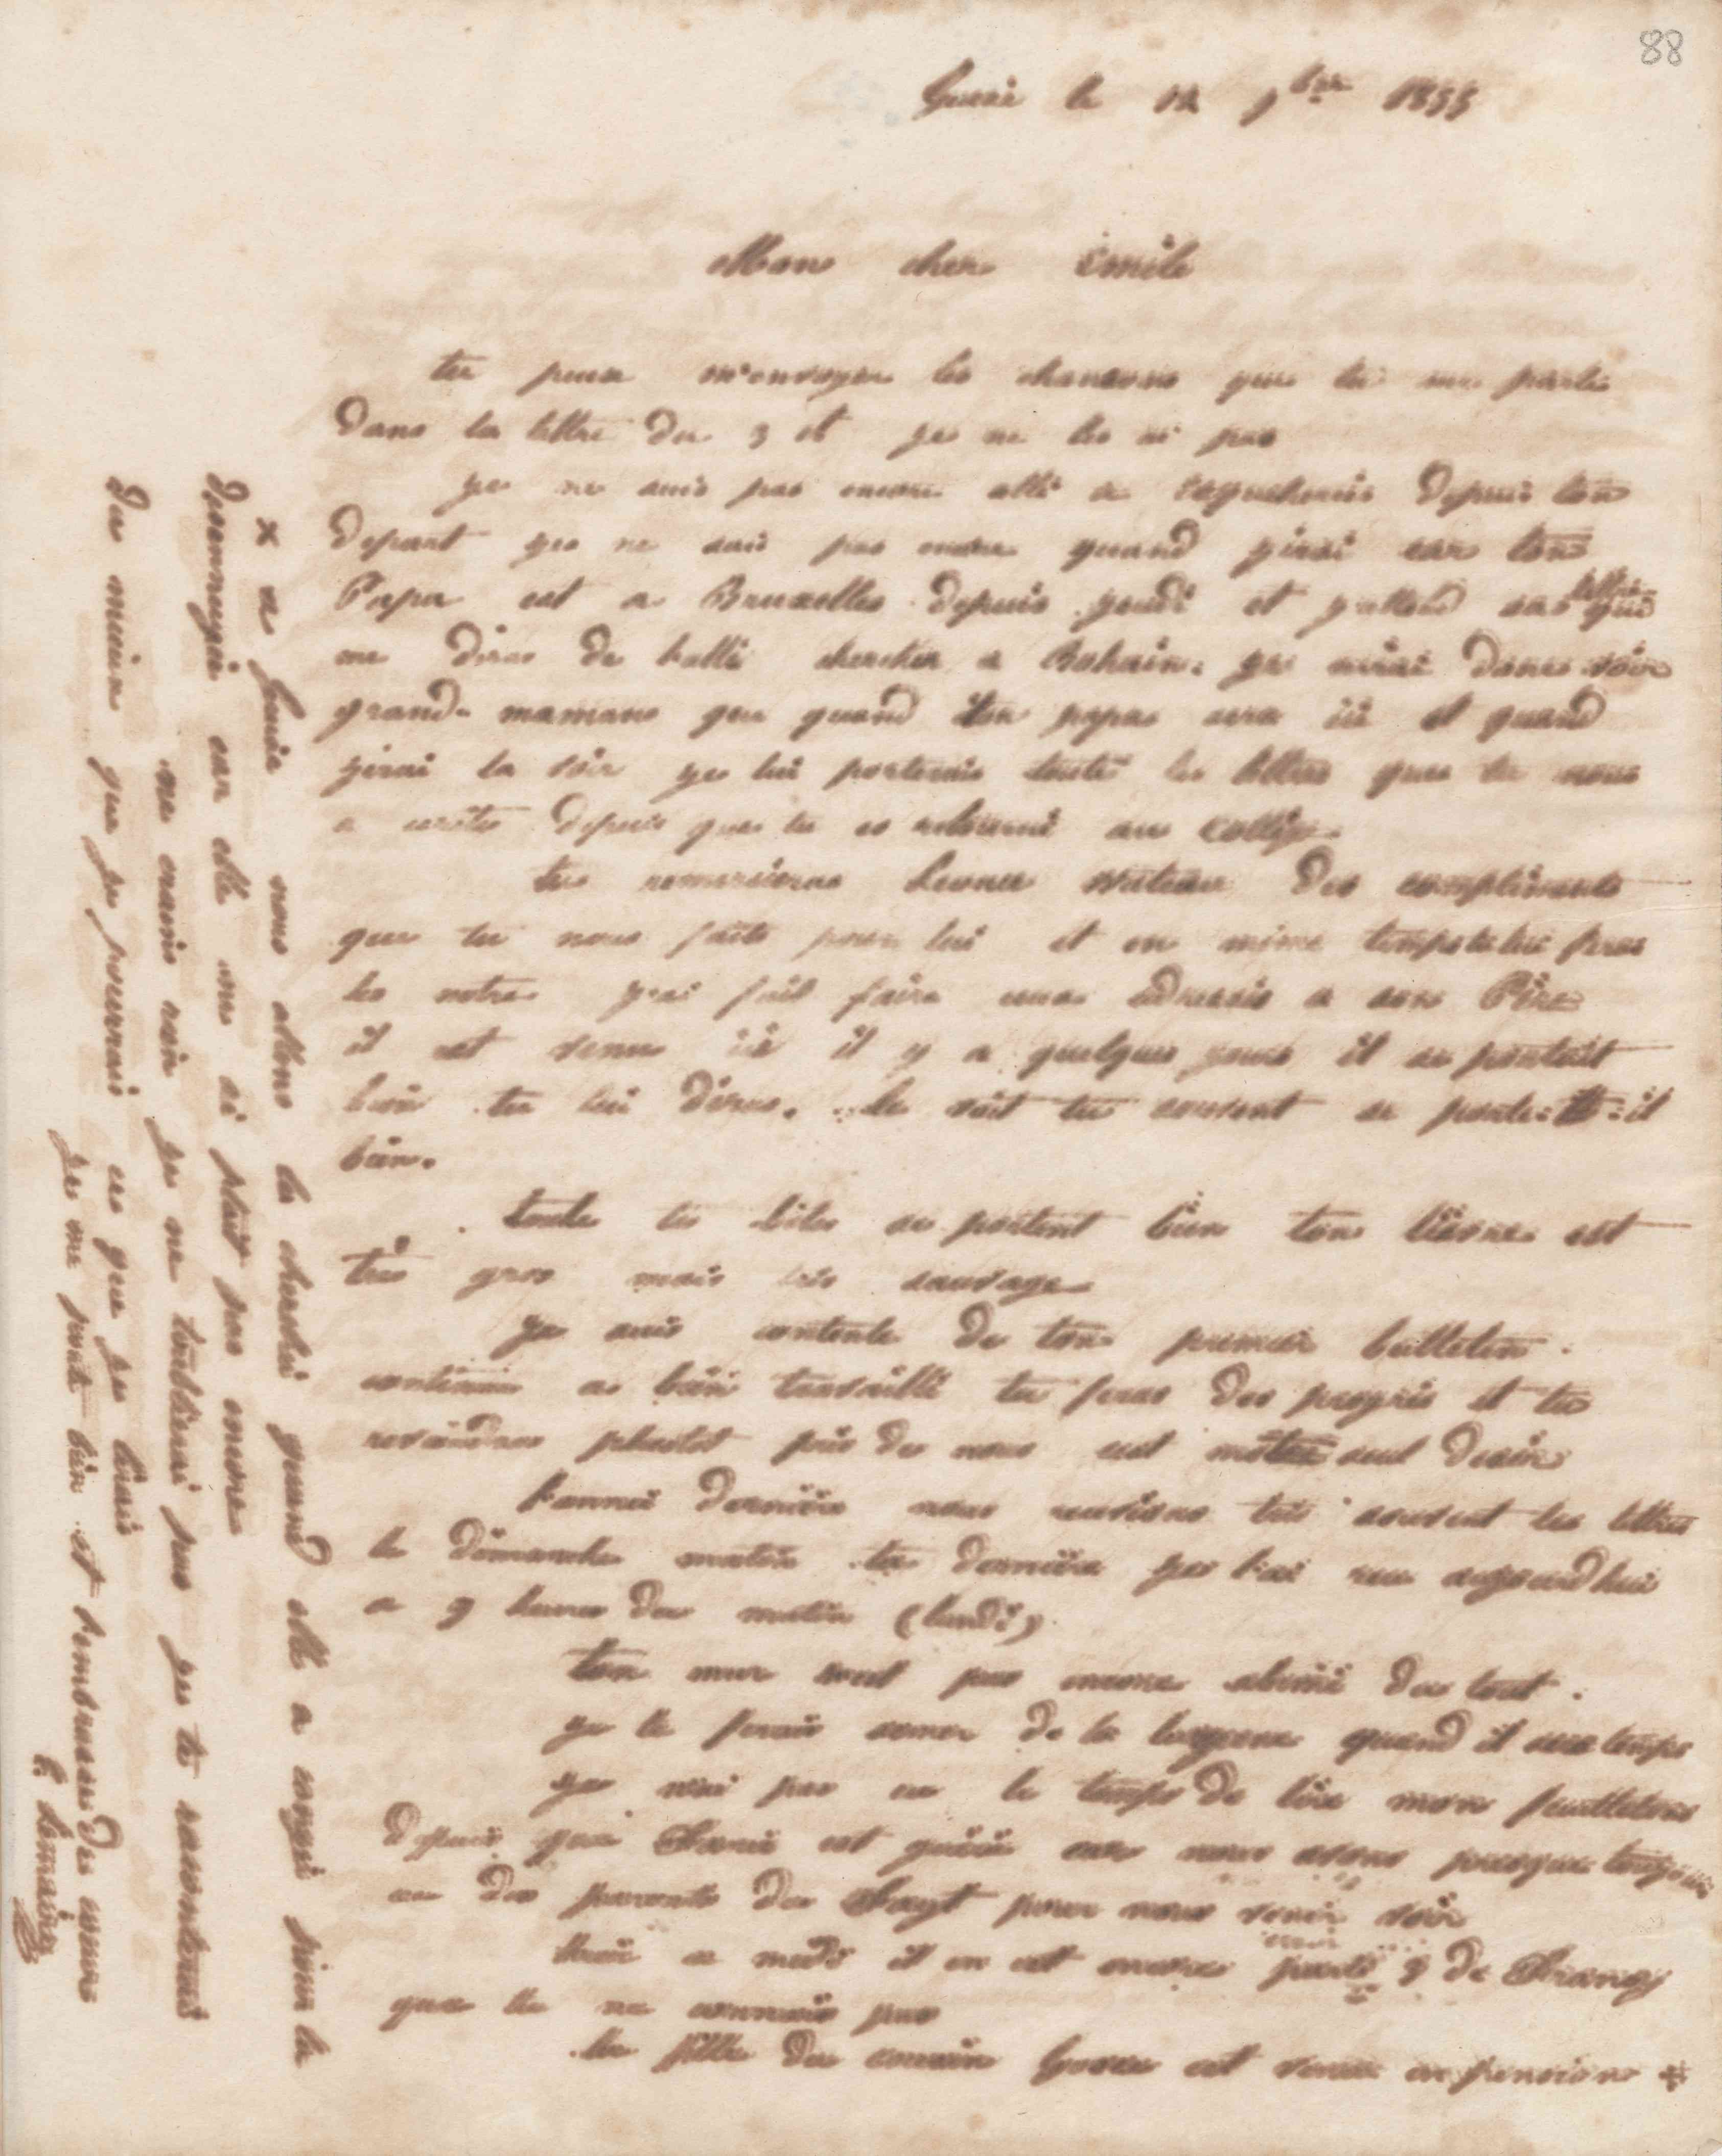 88
Guise le 12 9bre 1855
Mon cher Emile
tu peux m'envoyer les chansons que tu me parle
dans ta lettre du 3 et je ne les ai pas
je ne suis pas encore allé a depuis ton
depart je ne sais pas encore quand j'irai car ton
Papa est a Bruxelles depuis jeudi et j'attend sas lettre qui
me diras de l'allé chercher a Bohain. je nirai donc voir
grand-maman que quand ton papa sera ici et quand
j'irai la voir je lui porterais toute les lettres que tu nous
a écrites depuis que tu es retourné au college.
tu remercieras des compliments
que tu nous faite pour lui et en même temps tu lui feras
les notres j'ai fait faire une a son Père
il est venu ici il y a quelques jours il se portait
bien tu lui diras. le voit tu souvent se porte-t-il
bien.
toute tes bêtes se portent bien ton lièvre est
très gros mais très sauvage
je suis contente de ton premier bulletin.
continue a bien travaillé tu feras des progrès et tu
reviendras plustot près de nous cest notre seul desir
l'année dernière nous recevions très souvent tes lettres
le dimanche matin ta dernière je l'ai reçu aujourd'hui
a 9 heures du matin (lundi)
ton mur nest pas encore abimé du tout.
je te ferais semer de la luzerne quand il sera temps
je nai pas eu le temps de lire mon feuilleton
depuis que est car nous avons presque toujours
eu des parents du pour nous venir voir
a midi il en est encore parti 9 de
que tu ne connais pas
la fille du cousin est venue en pension *
x a Guise nous allons la cherché quand elle a congé pour la
desennuyer car elle ne si plait pas encore
me maris rien je ne toublirai pas je te raconterai
du mieux que je pourrai ce que je ferai
je me porte bien et t'embrasse de coeur